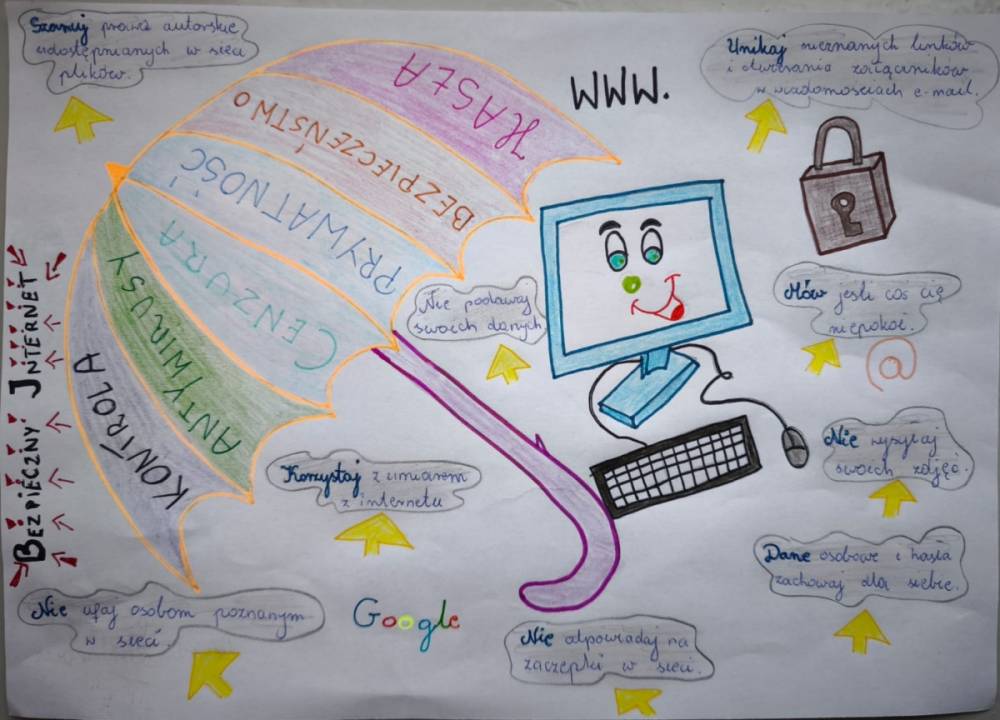 Szanuj prawa autorskie
udostępnianych w sieci
plików.
WWW.
Unikaj nieznanych linków
i otwierania załączników
w wiadomościach e-mail.
HASŁA
BEZPIECZEŃSTWO
PRYWATNOŚĆ
CENZURA
ANTYWIRUSY
KONTROLA
BEZPIECZNY INTERNET
Nie podawaj
swoich danych
Mów jeśli coś cię
niepokoi.
@
Nie wysyłaj
swoich zdjęć.
Korzystaj z umiarem
z internetu
Dane osobowe i hasła
zachowaj dla siebie.
Nie ufaj osobom poznanym
w sieci.
Google
Nie odpowiadaj na
zaczepki w sieci.